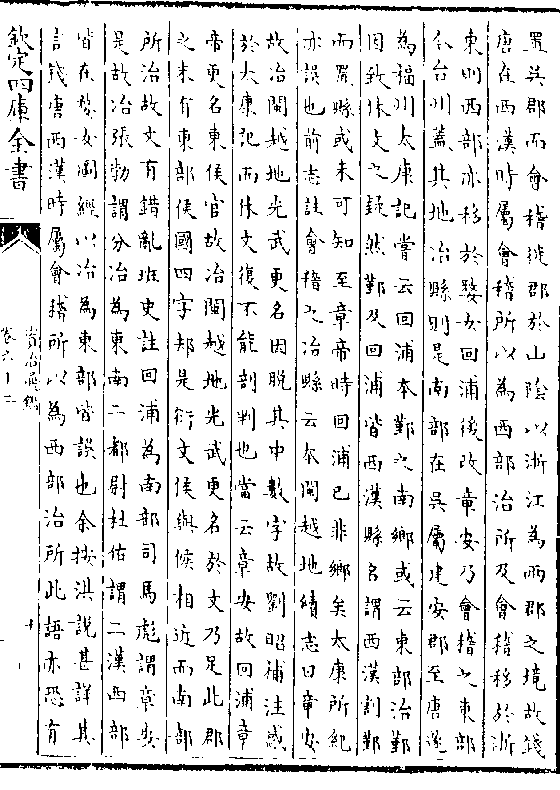 置吳郡而會稽徙郡於山陰以浙江為兩郡之境故錢
唐在西漢時屬會稽所以為西部治所及會稽移於浙
東則西部亦移於婺女回浦後改章安乃會稽之東部
今台州蓋其地冶縣則是南部在吳屬建安郡至唐遂
為福州太康記嘗云回浦本鄞之南鄉或云東部治鄞
因致休文之疑然鄞及回浦皆西漢縣名謂西漢割鄞
而置縣或未可知至章帝時回浦已非鄉矣太康所紀
亦誤也前志註會稽之冶縣云本閩越地續志曰章安
故冶閩越地光武更名因脱其中數字故劉昭補注惑
於太康記而休文復不能剖判也當云章安故回浦章
帝更名東侯官故冶閩越地光武更名於文乃足此郡
之末有東部侯國四字却是衍文侯與候相近而南部
所治故文有錯亂班史註回浦為南部司馬彪謂章安
是故冶張勃謂分冶為東南二都尉杜佑謂二漢西部
皆在婺女圖經以冶為東部皆誤也余按洪說甚詳其
言錢唐西漢時屬會稽所以為西部治所此語亦恐有
欽定四庫全書
資治通鑑
卷六十二
十